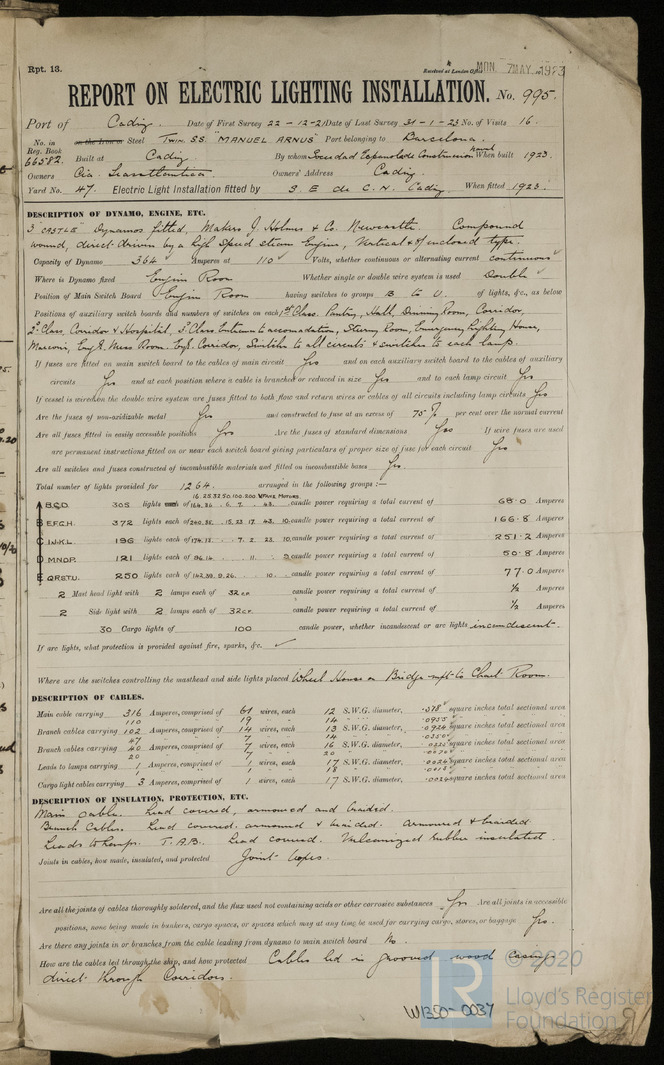 Rpt. 13.
Received at London Office MON. 7 MAY. 1923
REPORT ON ELECTRIC LIGHTING INSTALLATION. No. 995.
Port of Cadiz. Date of First Survey 22-12-21 Date of Last Survey 31-1-23 No. of Visits 16.
No. in Reg. Book 66582. on the Iron or Steel Twin SS "MANUEL ARNUS" Port belonging to Barcelona.
Built at Cadiz By whom Sociedad Española de Construccion Naval When built 1923.
Owners Cia. Trasatlantica Owners' Address Cadiz.
Yard No. 47. Electric Light Installation fitted by S. E. de C. N. Cadiz. When fitted 1923.
DESCRIPTION OF DYNAMO, ENGINE, ETC.
3 CASTLE Dynamos fitted, Makers J. Holmes & Co. Newcastle. Compound
wound, direct driven by a high speed steam Engine, Vertical & of enclosed type.
Capacity of Dynamo 364 Amperes at 110 Volts, whether continuous or alternating current continuous
Where is Dynamo fixed Engine Room Whether single or double wire system is used Double
Position of Main Switch Board Engine Room having switches to groups B to U. of lights, &c., as below
Positions of auxiliary switch boards and numbers of switches on each 1st Class. Pantry, Hall, Dinning Room, Corridor,
2nd Class, Corridor & Hospital, 3rd Class Entrance to accomodation, Steering Room, Emergency Lighting House,
Marconi, Eng's. Mess Room. Eng's. Corridor, Switches to all circuits & switches to each lamp.
If fuses are fitted on main switch board to the cables of main circuit Yes and on each auxiliary switch board to the cables of auxiliary
circuits Yes and at each position where a cable is branched or reduced in size Yes and to each lamp circuit Yes
If vessel is wired on the double wire system are fuses fitted to both flow and return wires or cables of all circuits including lamp circuits Yes
Are the fuses of non-oxidizable metal Yes and constructed to fuse at an excess of 75% per cent over the normal current
Are all fuses fitted in easily accessible positions Yes Are the fuses of standard dimensions Yes If wire fuses are used
are permanent instructions fitted on or near each switch board giving particulars of proper size of fuse for each circuit Yes
Are all switches and fuses constructed of incombustible materials and fitted on incombustible bases Yes.
Total number of lights provided for 1264. arranged in the following groups:—
16. 25. 32. 50. 100. 200. WFANS. MOTORS.
A B.C.D. 305 lights each of 164. 36. . 6. 7. . 43. candle power requiring a total current of 68.0 Amperes
B E.F.G.H. 372 lights each of 240. 35. . 15. 23. 17. 43. 10. candle power requiring a total current of 166.8 Amperes
C I.J.K.L. 196 lights each of 174. 13. . 7. 2. 23. 10. candle power requiring a total current of 251.2 Amperes
D M.N.O.P. 121 lights each of 96. 14. . 11. . 3. candle power requiring a total current of 50.8 Amperes
E Q.R.S.T.U. 250 lights each of 142. 59. 9. 26. . 10. candle power requiring a total current of 77.0 Amperes
2 Mast head light with 2 lamps each of 32 c.p. candle power requiring a total current of ½ Amperes
2 Side light with 2 lamps each of 32 c.p. candle power requiring a total current of ½ Amperes
30 Cargo lights of 100 candle power, whether incandescent or arc lights incandescent.
If arc lights, what protection is provided against fire, sparks, &c.
Where are the switches controlling the masthead and side lights placed Wheel House on Bridge next to Chart Room.
DESCRIPTION OF CABLES.
Main cable carrying 316 Amperes, comprised of 61 wires, each 12 S.W.G. diameter, .518 square inches total sectional area
110 19 14 .0955
Branch cables carrying 102 Amperes, comprised of 14 wires, each 13 S.W.G. diameter, .0924 square inches total sectional area
47 7 14 .0350
Branch cables carrying 40 Amperes, comprised of 7 wires, each 16 S.W.G. diameter, square inches total sectional area
20 7 20
Leads to lamps carrying 1 Amperes, comprised of 1 wires, each 17 S.W.G. diameter, .0024 square inches total sectional area
1 1 18 .0018
Cargo light cables carrying 3 Amperes, comprised of 1 wires, each 17 S.W.G. diameter, .0024 square inches total sectional area
DESCRIPTION OF INSULATION, PROTECTION, ETC.
Main Cable. Lead covered, armoured and braided.
Branch Cables. Lead covered, armoured & braided. Armoured & braided
Leads to lamps. T.A.B. Lead covered. Vulcanized rubber insulated.
Joints in cables, how made, insulated, and protected Joint boxes.
Are all the joints of cables thoroughly soldered, and the flux used not containing acids or other corrosive substances Yes Are all joints in accessible
positions, none being made in bunkers, cargo spaces, or spaces which may at any time be used for carrying cargo, stores, or baggage Yes.
Are there any joints in or branches from the cable leading from dynamo to main switch board No.
How are the cables led through the ship, and how protected Cables led in grooved wood casings
direct through Corridors.
© 2020
Lloyd's Register
Foundation
W1350-0037